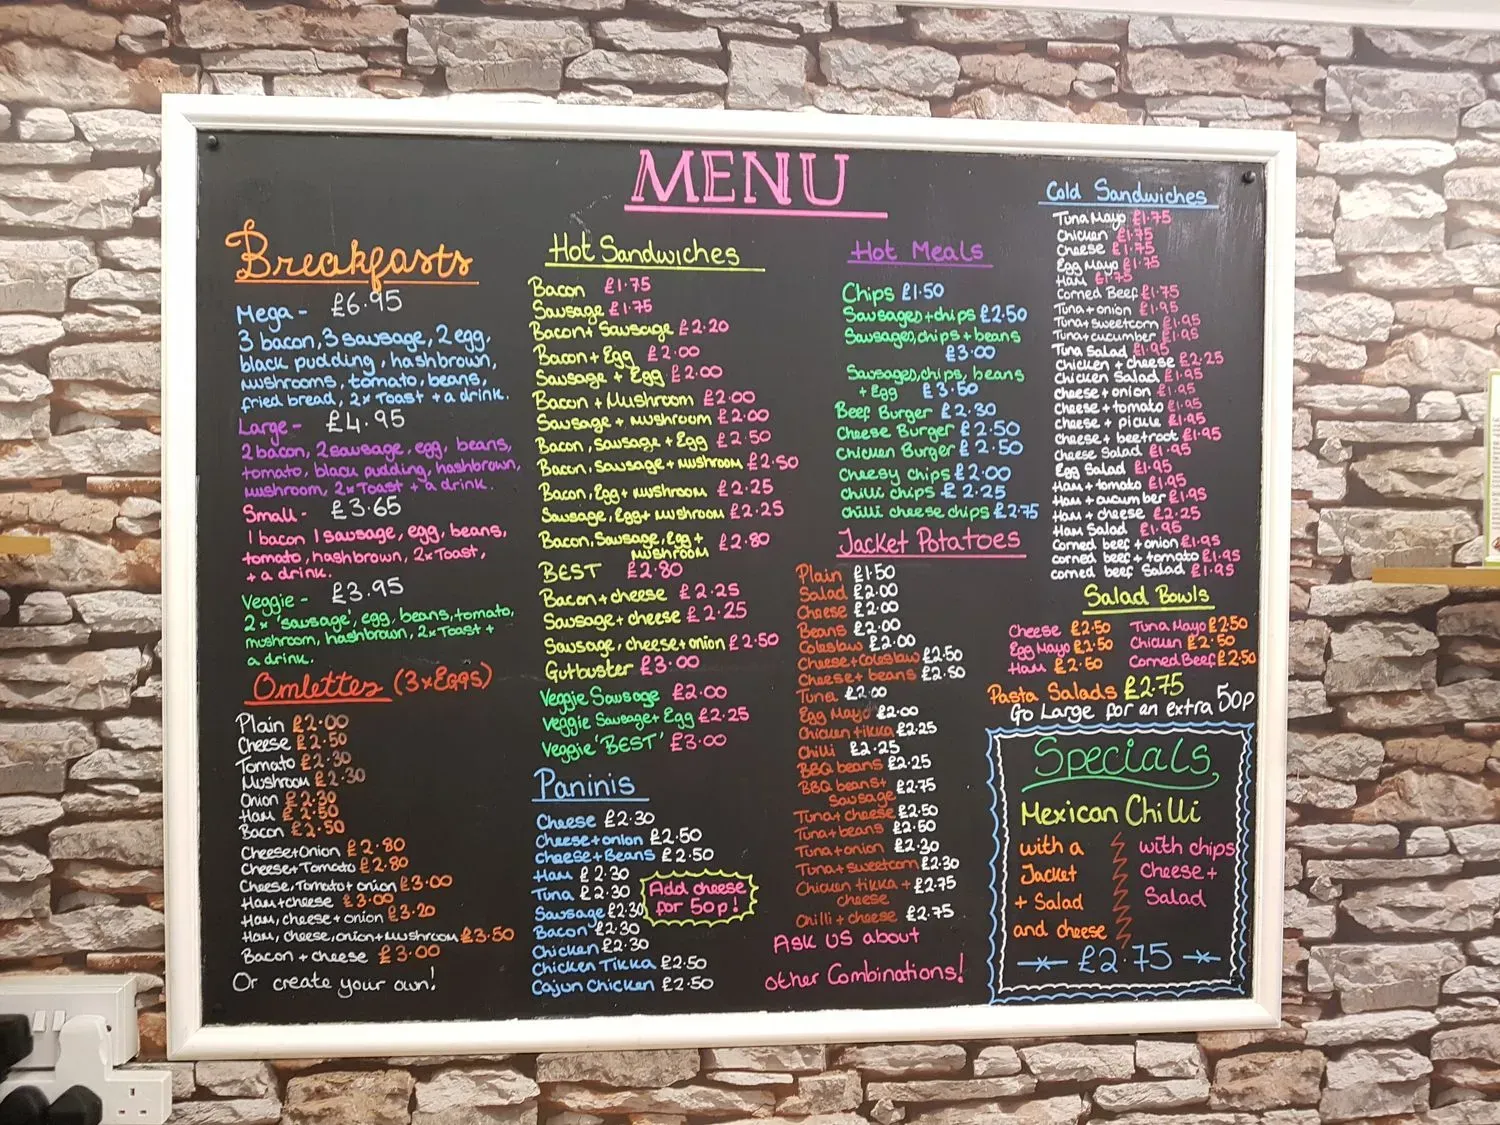 MENU
Breakfasts
Mega - £6.95
3 bacon, 3 sausage, 2 egg,
black pudding, hashbrown,
mushrooms, tomato, beans,
fried bread, 2x Toast + a drink.
Large - £4.95
2 bacon, 2 sausage, egg, beans,
tomato, black pudding, hashbrown,
mushroom, 2x Toast + a drink.
Small - £3.65
1 bacon 1 sausage, egg, beans,
tomato, hashbrown, 2x Toast,
+ a drink.
Veggie - £3.95
2 x 'sausage', egg, beans, tomato,
mushroom, hashbrown, 2x Toast +
a drink.
Omlettes (3x Eggs)
Plain £2.00
Cheese £2.50
Tomato £2.30
Mushroom £2.30
Onion £2.30
Ham £2.50
Bacon £2.50
Cheese+Onion £2.80
Cheese+Tomato £2.80
Cheese, Tomato + onion £3.00
Ham+cheese £3.00
Ham, cheese + onion £3.20
Ham, cheese, onion + mushroom £3.50
Bacon + cheese £3.00
Or create your own!
Hot Sandwiches
Bacon £1.75
Sausage £1.75
Bacon + Sausage £2.20
Bacon + Egg £2.00
Sausage + Egg £2.00
Bacon + Mushroom £2.00
Sausage + mushroom £2.00
Bacon, Sausage + Egg £2.50
Bacon, Sausage + mushroom £2.50
Bacon, Egg + mushroom £2.25
Sausage, Egg + mushroom £2.25
Bacon, Sausage, Egg +
mushroom £2.80
BEST £2.80
Bacon + cheese £2.25
Sausage + cheese £2.25
Sausage, cheese + onion £2.50
Gutbuster £3.00
Veggie Sausage £2.00
Veggie Sausage + Egg £2.25
Veggie 'BEST' £3.00
Paninis
Cheese £2.30
Cheese + onion £2.50
Cheese + Beans £2.50
Ham £2.30
Tuna £2.30
Sausage £2.30
Bacon £2.30
Chicken £2.30
Chicken Tikka £2.50
Cajun Chicken £2.50
Add cheese
for 50p!
Hot Meals
Chips £1.50
Sausages + chips £2.50
Sausages, chips + beans
£3.00
Sausages, chips, beans
+ Egg £3.50
Beef Burger £2.30
Cheese Burger £2.50
Chicken Burger £2.50
Cheesy chips £2.00
Chilli chips £2.25
Chilli cheese chips £2.75
Jacket Potatoes
Plain £1.50
Salad £2.00
Cheese £2.00
Beans £2.00
Coleslaw £2.00
Cheese + Coleslaw £2.50
Cheese + beans £2.50
Tuna £2.00
Egg Mayo £2.00
Chicken tikka £2.25
Chilli £2.25
BBQ beans £2.25
BBQ beans +
Sausage £2.75
Tuna + cheese £2.50
Tuna + beans £2.50
Tuna + onion £2.30
Tuna + sweetcorn £2.30
Chicken tikka +
cheese £2.75
Chilli + cheese £2.75
Ask us about
other Combinations!
Cold Sandwiches
Tuna Mayo £1.75
Chicken £1.75
Cheese £1.75
Egg Mayo £1.75
Ham £1.75
Corned Beef £1.75
Tuna + onion £1.95
Tuna + sweetcorn £1.95
Tuna + cucumber £1.95
Tuna Salad £1.95
Chicken + cheese £2.25
Chicken Salad £1.95
Cheese + onion £1.95
Cheese + tomato £1.95
Cheese + pickle £1.95
Cheese + beetroot £1.95
Cheese Salad £1.95
Egg Salad £1.95
Ham + tomato £1.95
Ham + cucumber £1.95
Ham + cheese £2.25
Ham Salad £1.95
Corned beef + onion £1.95
corned beef + tomato £1.95
corned beef Salad £1.95
Salad Bowls
Cheese £2.50 Tuna Mayo £2.50
Egg Mayo £2.50 Chicken £2.50
Ham £2.50 Corned Beef £2.50
Pasta Salads £2.75
Go Large for an extra 50p
Specials
Mexican Chilli
with a
Jacket
+ Salad
and cheese
with chips
Cheese +
Salad
£2.75